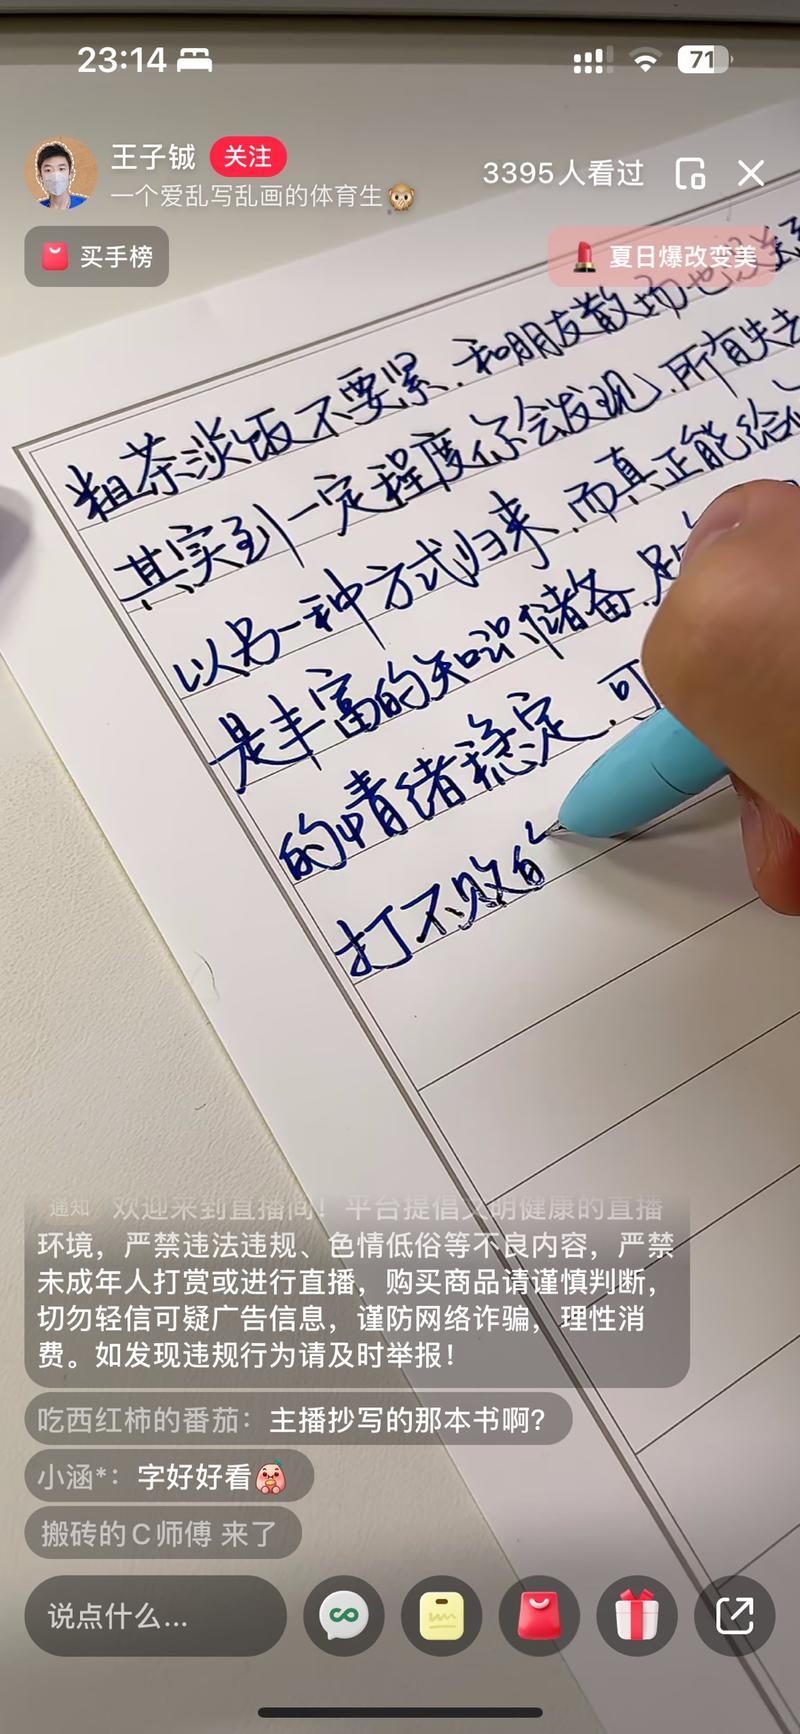 23:14
71
王子铖
关注
3395人看过
一个爱乱写乱画的体育生
买手榜
夏日爆改变美
粗茶淡饭不要紧.和朋友散场也没关
其实到一定程度你会发现.所有失去
以另一种方式归来.而真正能给
是丰富的知识储备.足
的情绪稳定.可
打不败的
通知 欢迎来到直播间！平台提倡文明健康的直播
环境，严禁违法违规、色情低俗等不良内容，严禁
未成年人打赏或进行直播，购买商品请谨慎判断，
切勿轻信可疑广告信息，谨防网络诈骗，理性消
费。如发现违规行为请及时举报！
吃西红柿的番茄：主播抄写的那本书啊？
小涵*：字好好看
搬砖的C师傅 来了
说点什么...